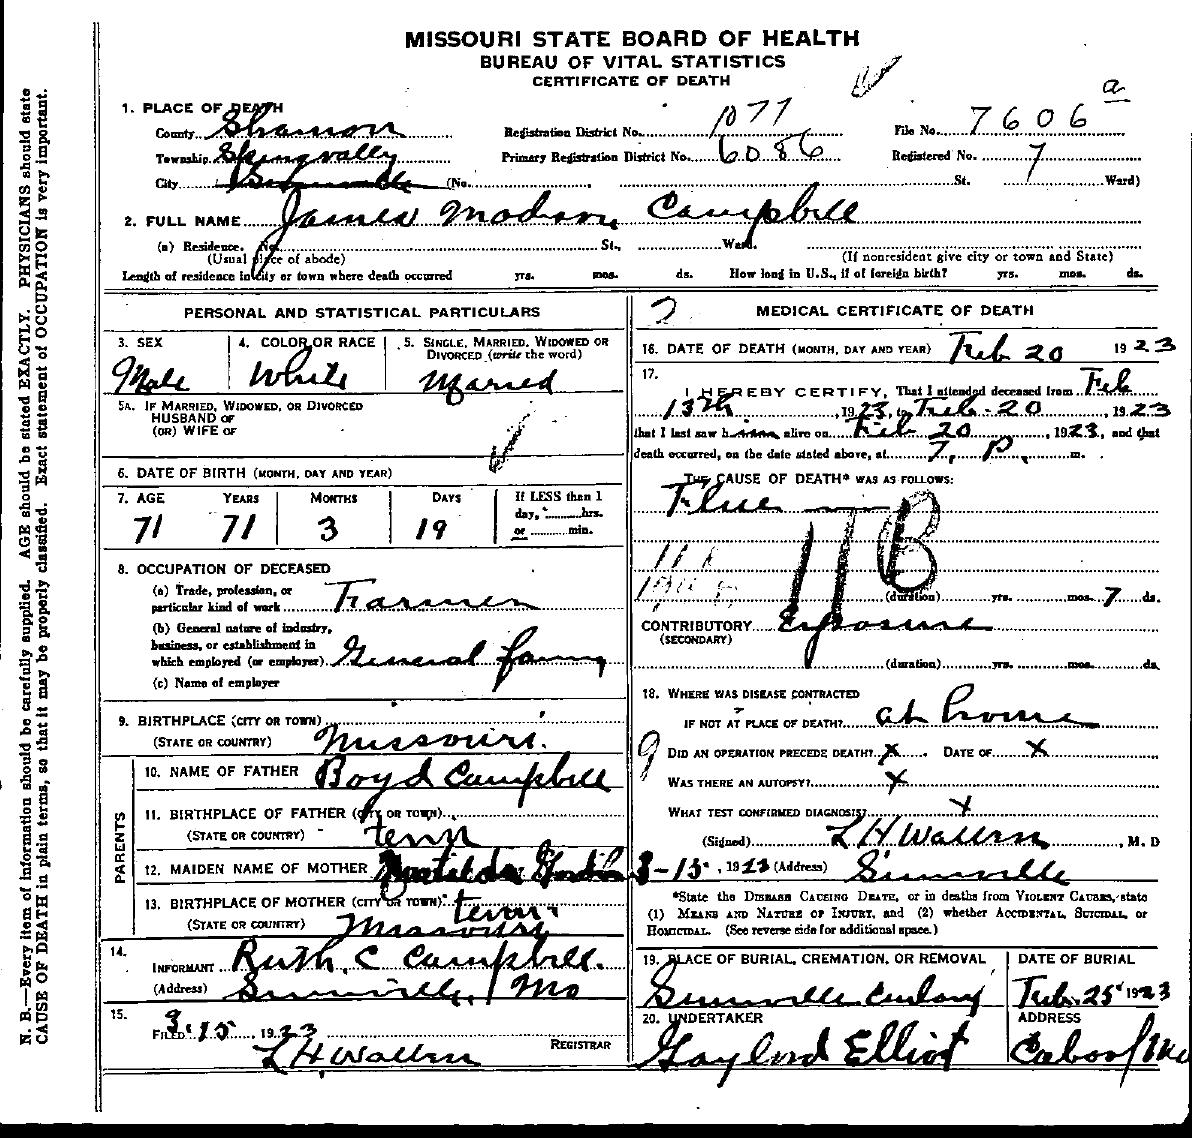 MISSOURI STATE BOARD OF HEALTH
BUREAU OF VITAL STATISTICS
CERTIFICATE OF DEATH
1. PLACE OF DEATH
County Shannon Registration District No. 1077 File No. 7606 a
Township Spring valley Primary Registration District No. 6086 Registered No. 7
City (No. St. Ward)
2. FULL NAME James Madison Campbell
(a) Residence. No. St., Ward.
(Usual place of abode) (If nonresident give city or town and State)
Length of residence in city or town where death occurred yrs. mos. ds. How long in U.S., if of foreign birth? yrs. mos. ds.
PERSONAL AND STATISTICAL PARTICULARS
3. SEX 4. COLOR OR RACE 5. SINGLE, MARRIED, WIDOWED OR
DIVORCED (write the word)
Male White Married
5A. IF MARRIED, WIDOWED, OR DIVORCED
HUSBAND OF
(OR) WIFE OF
6. DATE OF BIRTH (MONTH, DAY AND YEAR)
7. AGE YEARS MONTHS DAYS If LESS than 1
day, hrs.
or min.
71 71 3 19
8. OCCUPATION OF DECEASED
(a) Trade, profession, or
particular kind of work Farmer
(b) General nature of industry,
business, or establishment in
which employed (or employer) General farming
(c) Name of employer
9. BIRTHPLACE (CITY OR TOWN)
(STATE OR COUNTRY) Missouri.
PARENTS
10. NAME OF FATHER Boyd Campbell
11. BIRTHPLACE OF FATHER (CITY OR TOWN)
(STATE OR COUNTRY) tenn
12. MAIDEN NAME OF MOTHER Matilda
13. BIRTHPLACE OF MOTHER (CITY OR TOWN) tenn
(STATE OR COUNTRY) Missouri
14.
INFORMANT Ruth C Campbell.
(Address) Summerville, Mo
15.
FILED 3-15 1923
L H Wallen REGISTRAR
7 MEDICAL CERTIFICATE OF DEATH
16. DATE OF DEATH (MONTH, DAY AND YEAR) Feb 20 1923
17.
I HEREBY CERTIFY, That I attended deceased from Feb
13th, 1923, to Feb-20, 1923
that I last saw him alive on Feb 20, 1923, and that
death occurred, on the date stated above, at 7, P. m.
THE CAUSE OF DEATH* WAS AS FOLLOWS:
Flue
11B
(duration) yrs. mos. 7 ds.
CONTRIBUTORY Exposure
(SECONDARY)
(duration) yrs. mos. ds.
18. WHERE WAS DISEASE CONTRACTED
IF NOT AT PLACE OF DEATH? at home
9 DID AN OPERATION PRECEDE DEATH? x DATE OF x
WAS THERE AN AUTOPSY? x
WHAT TEST CONFIRMED DIAGNOSIS? x
(Signed) L H Wallen, M. D
3-15, 1923 (Address) Summville
*State the DISEASE CAUSING DEATH, or in deaths from VIOLENT CAUSES, state
(1) MEANS AND NATURE OF INJURY, and (2) whether ACCIDENTAL, SUICIDAL, or
HOMICIDAL. (See reverse side for additional space.)
19. PLACE OF BURIAL, CREMATION, OR REMOVAL DATE OF BURIAL
Summville Feb. 25 1923
20. UNDERTAKER ADDRESS
Gaylord Elliot Cabool Mo
N. B.—Every item of information should be carefully supplied. AGE should be stated EXACTLY. PHYSICIANS should state
CAUSE OF DEATH in plain terms, so that it may be properly classified. Exact statement of OCCUPATION is very important.